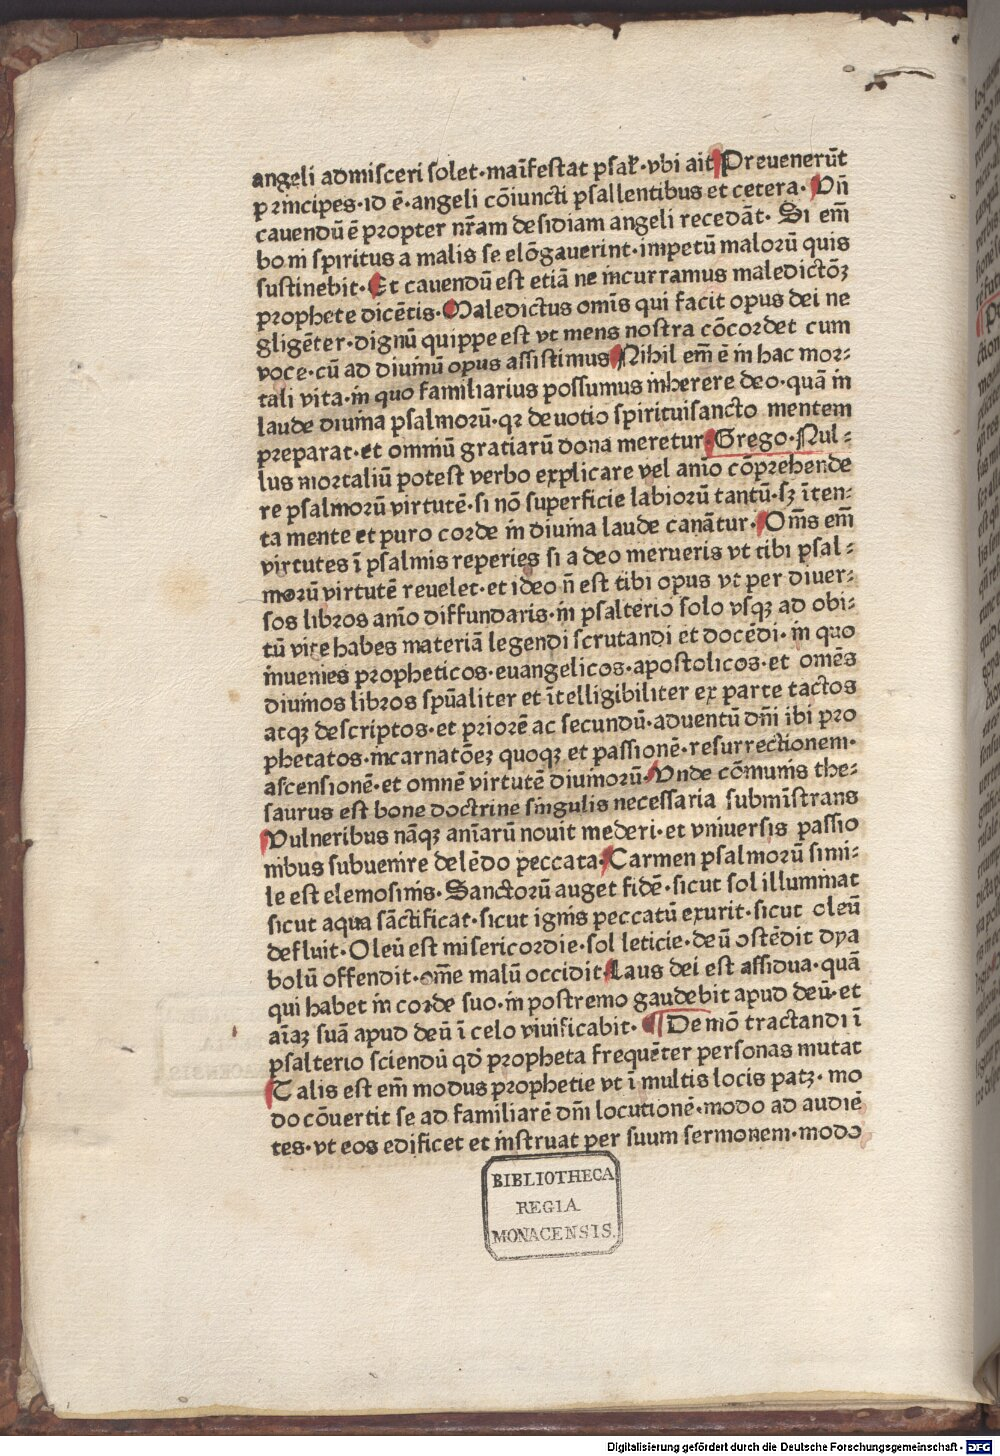 angeli admisceri solet·maīfestat psal̃·vbi ait Preuenerūt
principes·id ē·angeli cōiuncti psallentibus et cetera· Vñ
cauendū ē propter nr̃am desidiam angeli recedāt· Si em̄
boni spiritus a malis se elōgauerint·impetū malorū quis
sustinebit· Et cauendū est etiā ne incurramus maledictōꝫ
prophete dicētis· Maledictus omīs qui facit opus dei ne
gligēter·dignū quippe est vt mens nostra cōcordet cum
voce·cū ad diuinū opus assistimus Nihil em̄ ē in hac mor⸗
tali vita·in quo familiarius possumus inherere deo·quā in
laude diuina psalmorū·qꝛ deuotio spiritussancto mentem
preparat·et omniū gratiarū dona meretur· Grego·Nul⸗
lus mortaliū potest verbo explicare vel aīo cōprehende
re psalmorū virtutē·si nō superficie labiorū tantū·sꝫ īten⸗
ta mente et puro corde in diuina laude canātur· Om̄s em̄
virtutes ī psalmis reperies si a deo merueris vt tibi psal⸗
morū virtutē reuelet·et ideo ñ est tibi opus vt per diuer⸗
sos libros aīo diffundaris·in psalterio solo vsqꝫ ad obi⸗
tū vite habes materiā legendi scrutandi et docēdi·in quo
inuenies propheticos·euangelicos·apostolicos·et omēs
diuinos libros spūaliter et ītelligibiliter ex parte tactos
atqꝫ descriptos·et priorē ac secundū·aduentū dn̄i ibi pro
phetatos·incarnatōeꝫ quoqꝫ et passionē·resurrectionem·
ascensionē·et omnē virtutē diuinorū· Vnde cōmunis the⸗
saurus est bone doctrine singulis necessaria subministrans
Vulneribus nāqꝫ anīarū nouit mederi·et vniuersis passio
nibus subuenire delēdo peccata· Carmen psalmorū simi⸗
le est elemosinis· Sanctorū auget fidē·sicut sol illuminat
sicut aqua sāctificat·sicut ignis peccatū exurit·sicut oleū
defluit·Oleū est misericordie·sol leticie·deū ostēdit dya
bolū offendit·om̄e malū occidit· Laus dei est assidua·quā
qui habet in corde suo·in postremo gaudebit apud deū·et
aīaꝫ suā apud deū ī celo viuificabit· ¶ De mō tractandi ī
psalterio sciendū qđ propheta frequēter personas mutat
Talis est em̄ modus prophetie vt ī multis locis patꝫ·mo
do cōuertit se ad familiarē dn̄i locutionē·modo ad audiē
tes·vt eos edificet et instruat per suum sermonem·modo
BIBLIOTHECA
REGIA
MONACENSIS.
Digitalisierung gefördert durch die Deutsche Forschungsgemeinschaft - DFG